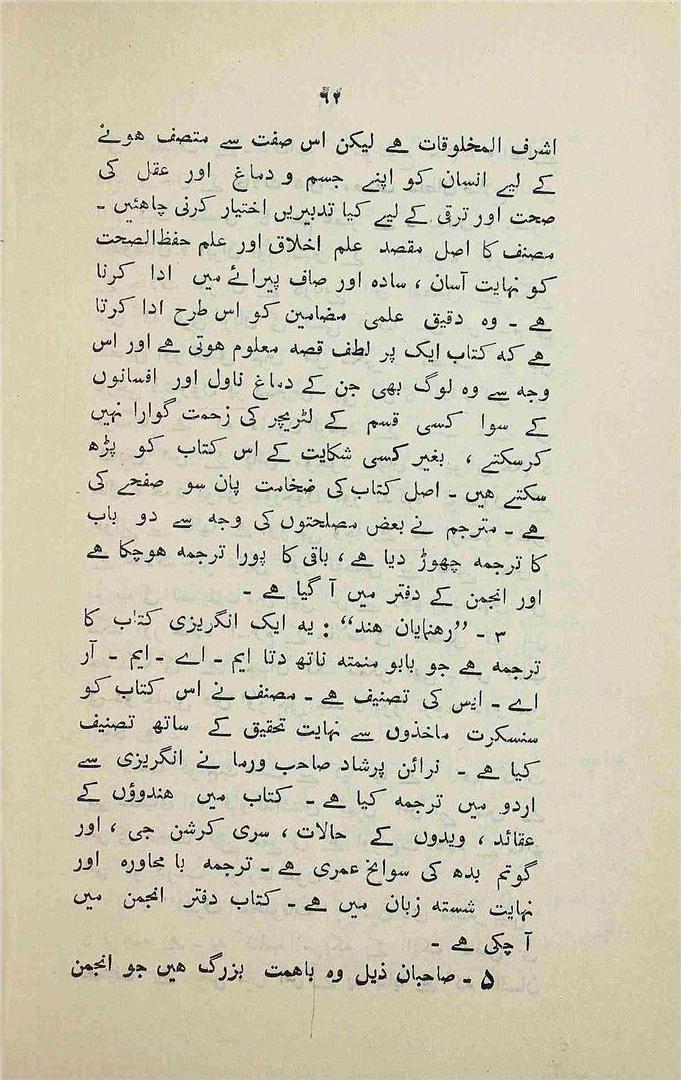 ۶۲
اشرف المخلوقات ہے لیکن اس صفت سے متصف ہونے
کے لیے انسان کو اپنے جسم و دماغ اور عقل کی
صحت اور ترقی کے لیے کیا تدبیریں اختیار کرنی چاہئیں ۔
مصنف کا اصل مقصد علم اخلاق اور علم حفظ الصحت
کو نہایت آسان ، سادہ اور صاف پیرائے میں ادا کرنا
ہے ۔ وہ دقیق علمی مضامین کو اس طرح ادا کرتا
ہے کہ کتاب ایک پر لطف قصہ معلوم ہوتی ہے اور اس
وجہ سے وہ لوگ بھی جن کے دماغ ناول اور افسانوں
کے سوا کسی قسم کے لٹریچر کی زحمت گوارا نہیں
کرسکتے ، بغیر کسی شکایت کے اس کتاب کو پڑھ
سکتے ہیں ۔ اصل کتاب کی ضخامت پان سو صفحے کی
ہے ۔ مترجم نے بعض مصلحتوں کی وجہ سے دو باب
کا ترجمہ چھوڑ دیا ہے ، باقی کا پورا ترجمہ ہوچکا ہے
اور انجمن کے دفتر میں آ گیا ہے ۔
۳ ۔ ”رہنمایان ہند“ : یہ ایک انگریزی کتاب کا
ترجمہ ہے جو بابو منمتہ ناتھ دتا ایم ۔ اے ۔ ایم ۔ آر
اے ۔ ایس کی تصنیف ہے ۔ مصنف نے اس کتاب کو
سنسکرت ماخذوں سے نہایت تحقیق کے ساتھ تصنیف
کیا ہے ۔ نرائن پرشاد صاحب ورما نے انگریزی سے
اردو میں ترجمہ کیا ہے ۔ کتاب میں ہندوؤں کے
عقائد ، ویدوں کے حالات ، سری کرشن جی ، اور
گوتم بدھ کی سوانح عمری ہے ۔ ترجمہ با محاورہ اور
نہایت شستہ زبان میں ہے ۔ کتاب دفتر انجمن میں
آ چکی ہے ۔
۵ ۔ صاحبان ذیل وہ باہمت بزرگ ہیں جو انجمن